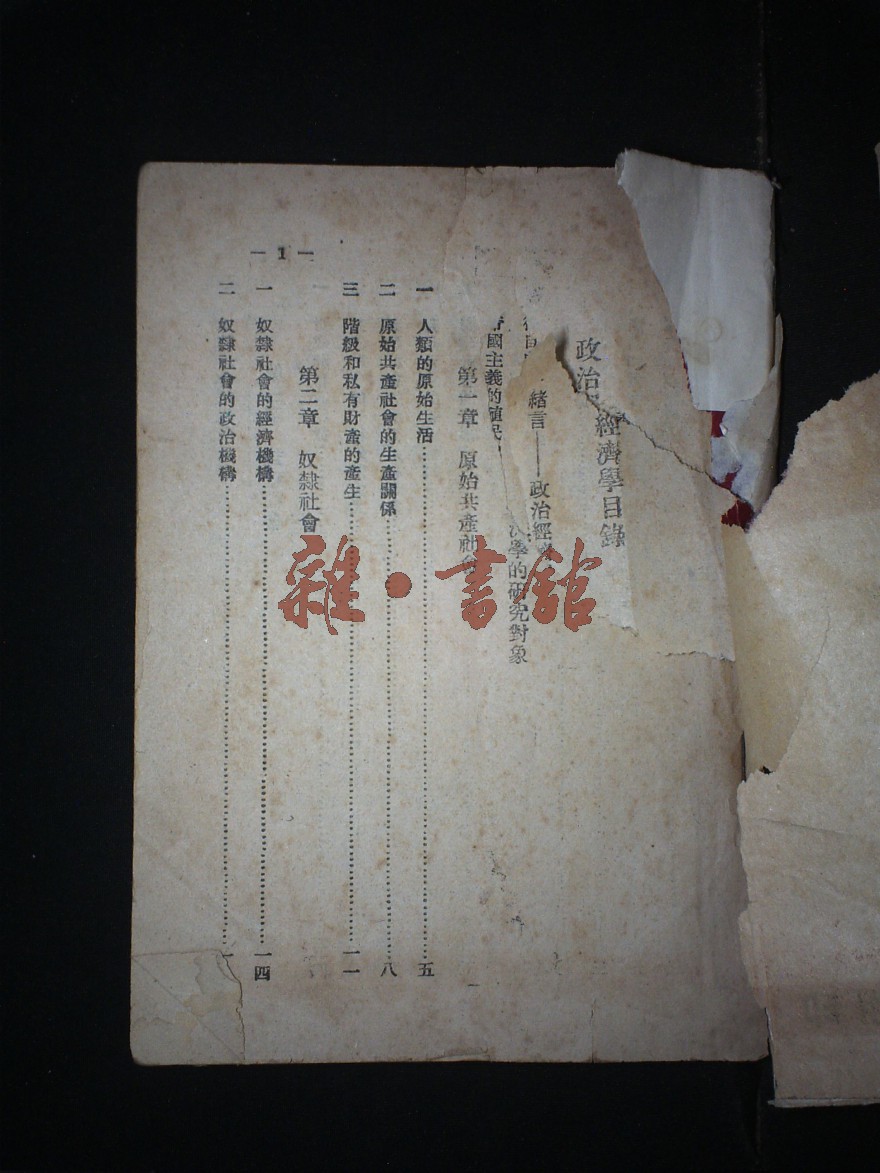 政治經濟學目錄
緒言——政治經
學的研究對象
國主義的殖民
第一章 原始共產社會
一 人類的原始生活……五
二 原始共產社會的生產關係……八
三 階級和私有財產的產生……一一
第二章 奴隸社會
一 奴隸社會的經濟機構……一四
二 奴隸社會的政治機構……
—1—
雜·書館